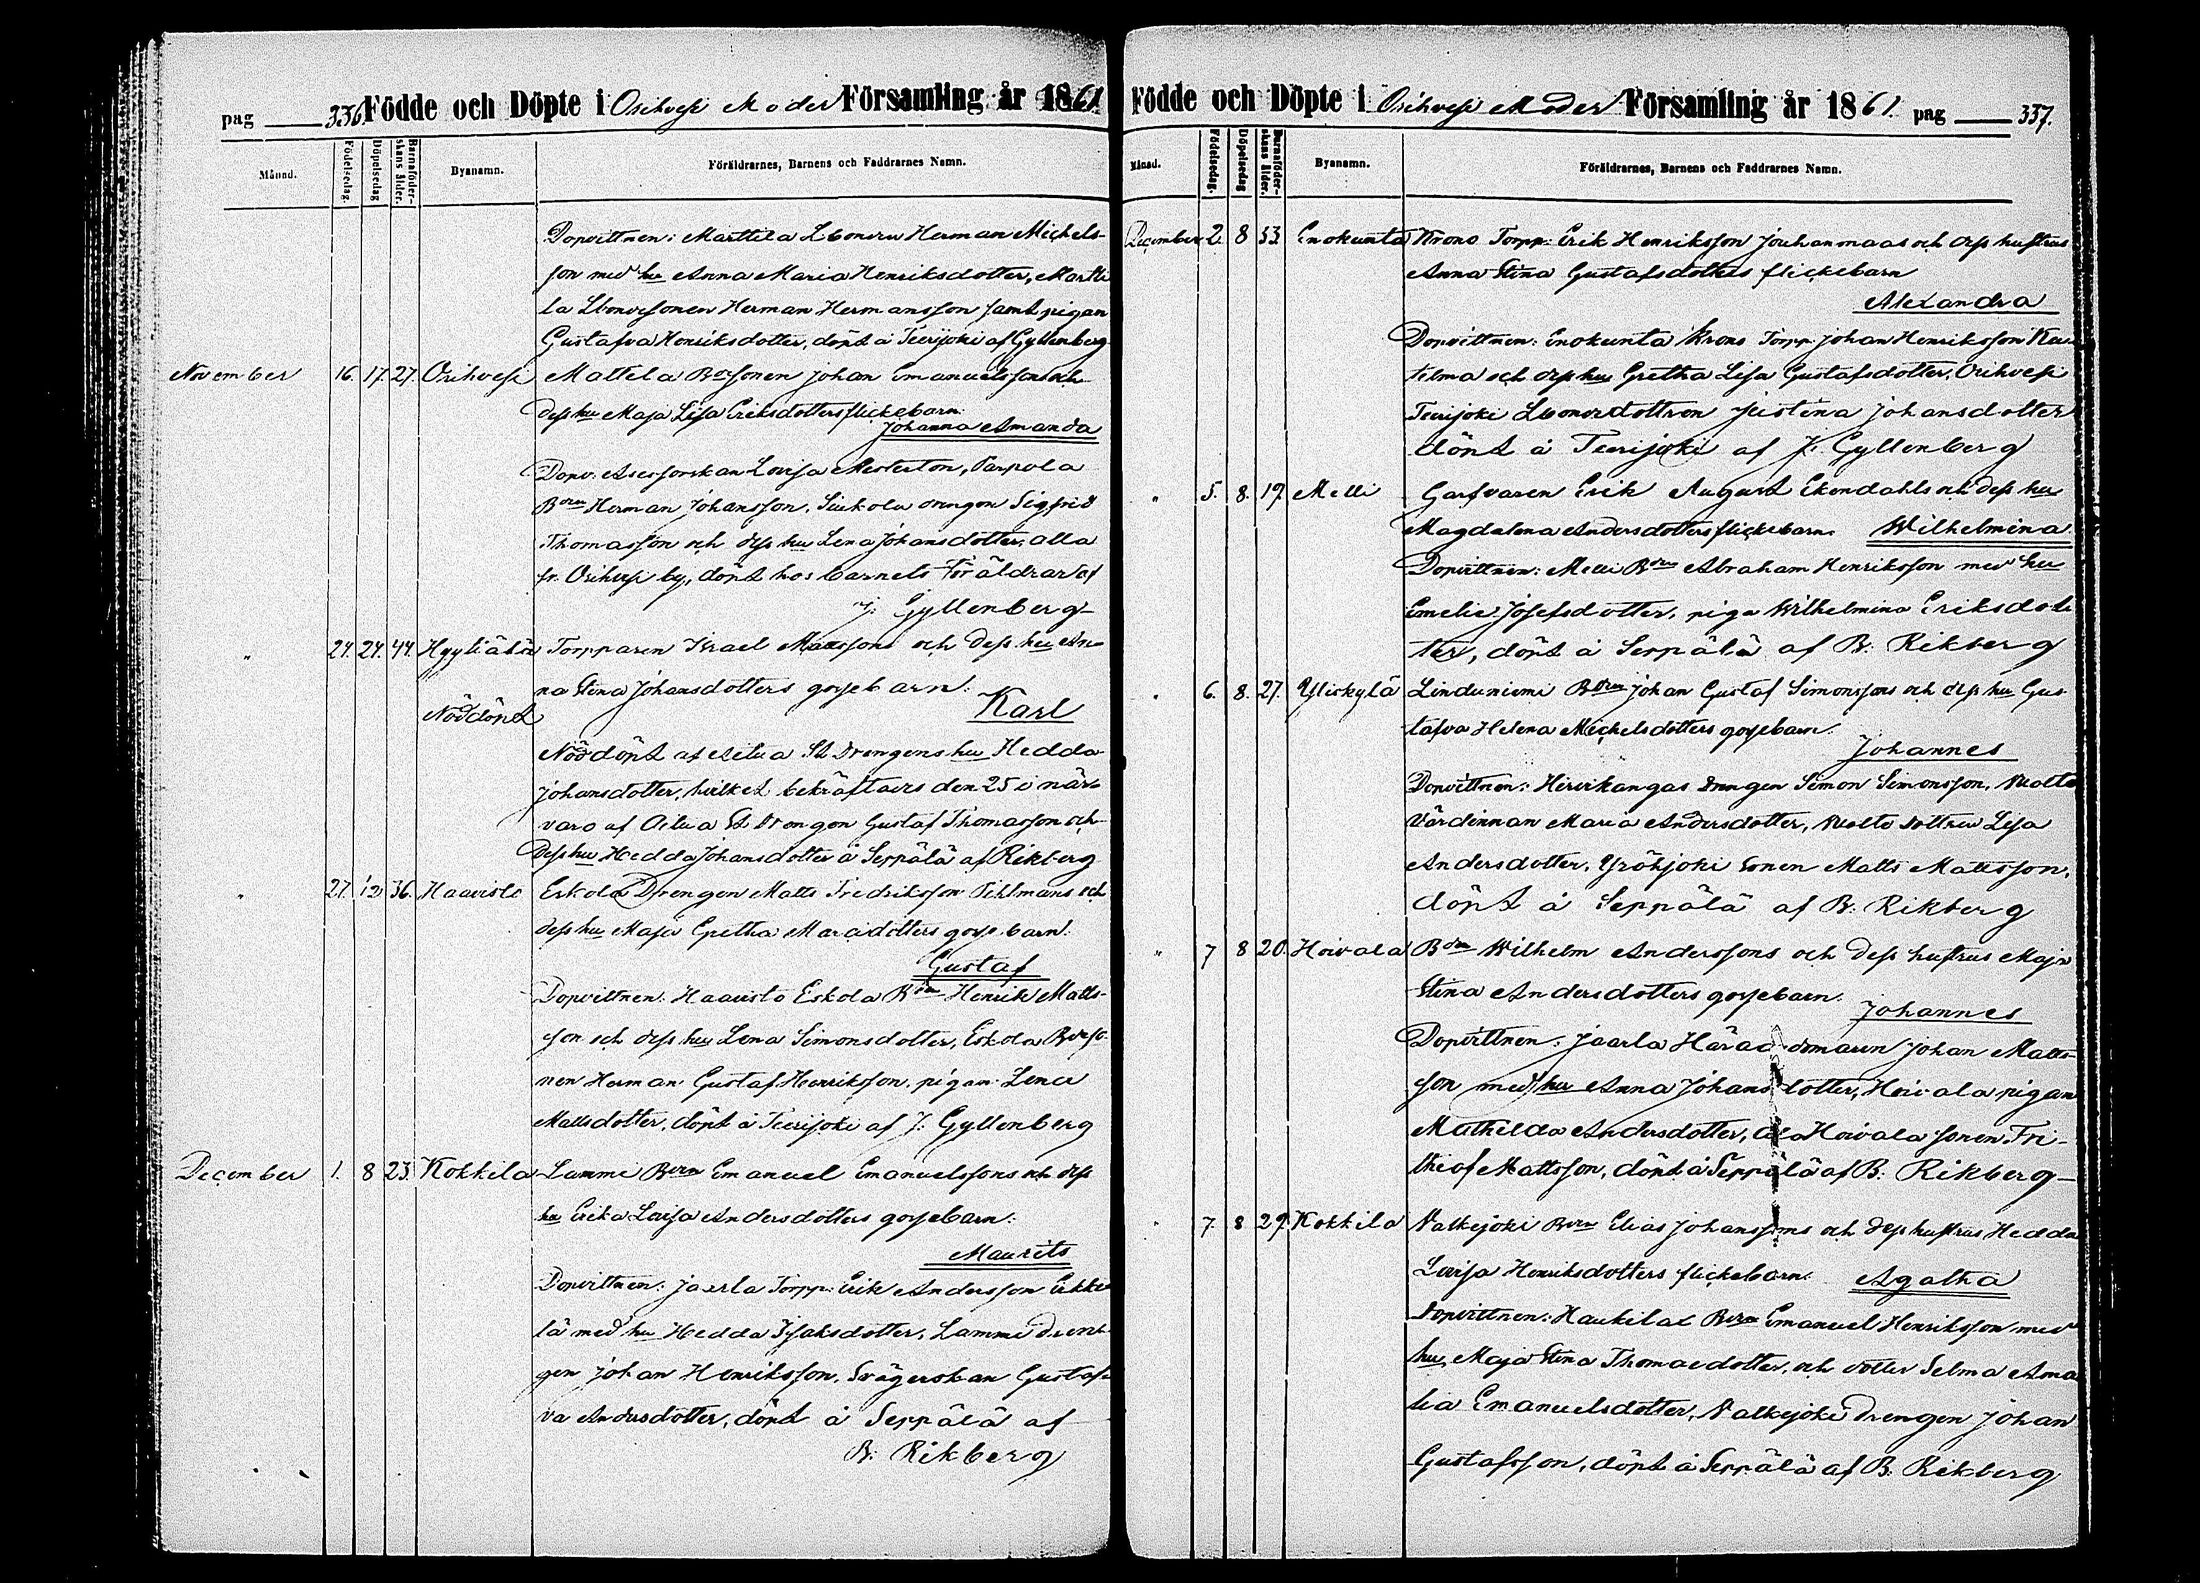 pag 336. Födde och Döpte i Orihvesi Moder Församling år 1861.
Månad. Födelsedag. Döpelsedag Barnaföderskans ålder. Byanamn. Föräldrarnes, Barnens och Faddrarnes Namn.
Dopvittnen: Marttila Herman Michels-
son med hu Anna Maria Henriksdotter, Martti
la Herman Hermansson samt pigan
Gustafva Henriksdotter, döpt å Teerijoki af Gyllenberg
November 16. 17. 27. Orihvesi Mattela Bdesonen Johan Emanuelssons och
dess hu Maja Lisa Eriksdotters flickebarn.
Johanna Amanda
Dopv. Lovisa Parpola
Bden Herman Johansson, drengen Sigfrid
Thomasson och dess hu Lena Johansdotter, alla
fr. Orihvesi by, döpt hos barnets föräldrar af
J. Gyllenberg
" 24. 24. 44. Hyyliälä Torpparen Israel Matssons och dess hu An-
na Stina Johansdotters gossebarn.
Nöddöpt Karl
Nöddöpt af St. Drengens hu Hedda
Johansdotter, hvilket bekräftades den 25 i när-
varo af St. Drengen Gustaf Thomasson och
dess hu Hedda Johansdotter å Seppälä af Rikberg
" 27. 36. Haavisto Eskola Drengen Matts Fredriksson Pihlmans och
dess hu Maja Gretha gosse barn.
Gustaf
Dopvittnen: Haavisto Eskola Bden Henrik Matts-
son och dess hu Lena Simonsdotter, Eskola Bdeso-
nen Herman Gustaf Henriksson, pigan Lena
Mattsdotter, döpt å Teerijoki af J. Gyllenberg
December 1. 8 23. Kokkila Lamme Bden Emanuel Emanuelssons och dess
hu Erika Lovisa Andersdotters gossebarn.
Maurits
Dopvittnen: Jaarla Torpp. Erik Andersson Erkki
lä med hu Hedda Isaksdotter, Lamme dren-
gen Johan Henriksson, Svägerskan Gustaf-
va Andersdotter, döpt å Seppälä af
B. Rikberg
Födde och Döpte i Orihvesi Moder Församling år 1861. pag 337.
Månad. Födelsedag. Döpelsedag Barnaföderskans ålder. Byanamn. Föräldrarnes, Barnens och Faddrarnes Namn.
December 2. 8 33. Enokunta Krono Torpp: Erik Henriksson Jouhanmaas och dess hustrus
Anna Stina Gustafsdotters flickebarn
Alexandra
Dopvittnen: Enokunta Krono Torpp. Johan Henriksson
och dess hu Gretha Lisa Gustafsdotter, Orihvesi
Teerijoki Justina Johansdotter
döpt å Teerijoki af J. Gyllenberg
" 5. 8. 19. Melli Garfvaren Erik August Ekendahls och dess hu
Magdalena Andersdotters flickebarn. Wilhelmina
Dopvittnen: Melli Bden Abraham Henriksson med hu
Emelie Josefsdotter, piga Wilhelmina Eriksdot-
ter, döpt å Seppälä af B. Rikberg
" 6. 8. 27. Yliskylä Linduniemi Bden Johan Gustaf Simonssons och dess hu Gus-
tafva Helena Michelsdotters gossebarn.
Johannes
Dopvittnen: Hirvikangas drengen Simon Simonsson,
Värdinnan Maria Andersdotter, dottren Lisa
Andersdotter, Yröhjoki sonen Matts Mattsson,
döpt å Seppälä af B. Rikberg
" 7 8 20. Hoivala Bden Wilhelm Anderssons och dess hustrus Maja
Stina Andersdotters gossebarn.
Johannes
Dopvittnen: Jaarla Häradsdomaren Johan Matts-
son med hu Anna Johansdotter, Hoivala pigan
Mathilda Andersdotter, Hoivala sonen Fri-
thiof Mattsson, döpt å Seppälä af B. Rikberg
" 7. 8 29. Kokkila Valkejoki Bden Elias Johanssons och dess hustrus Hedda
Lovisa Henriksdotters flickebarn. Agatha
Dopvittnen: Haukilax Bden Emanuel Henriksson med
hu Maja Stina Thomaedotter, och dotter Selma Ama
lia Emanuelsdotter, Valkejoki drengen Johan
Gustafsson, döpt å Seppälä af B. Rikberg